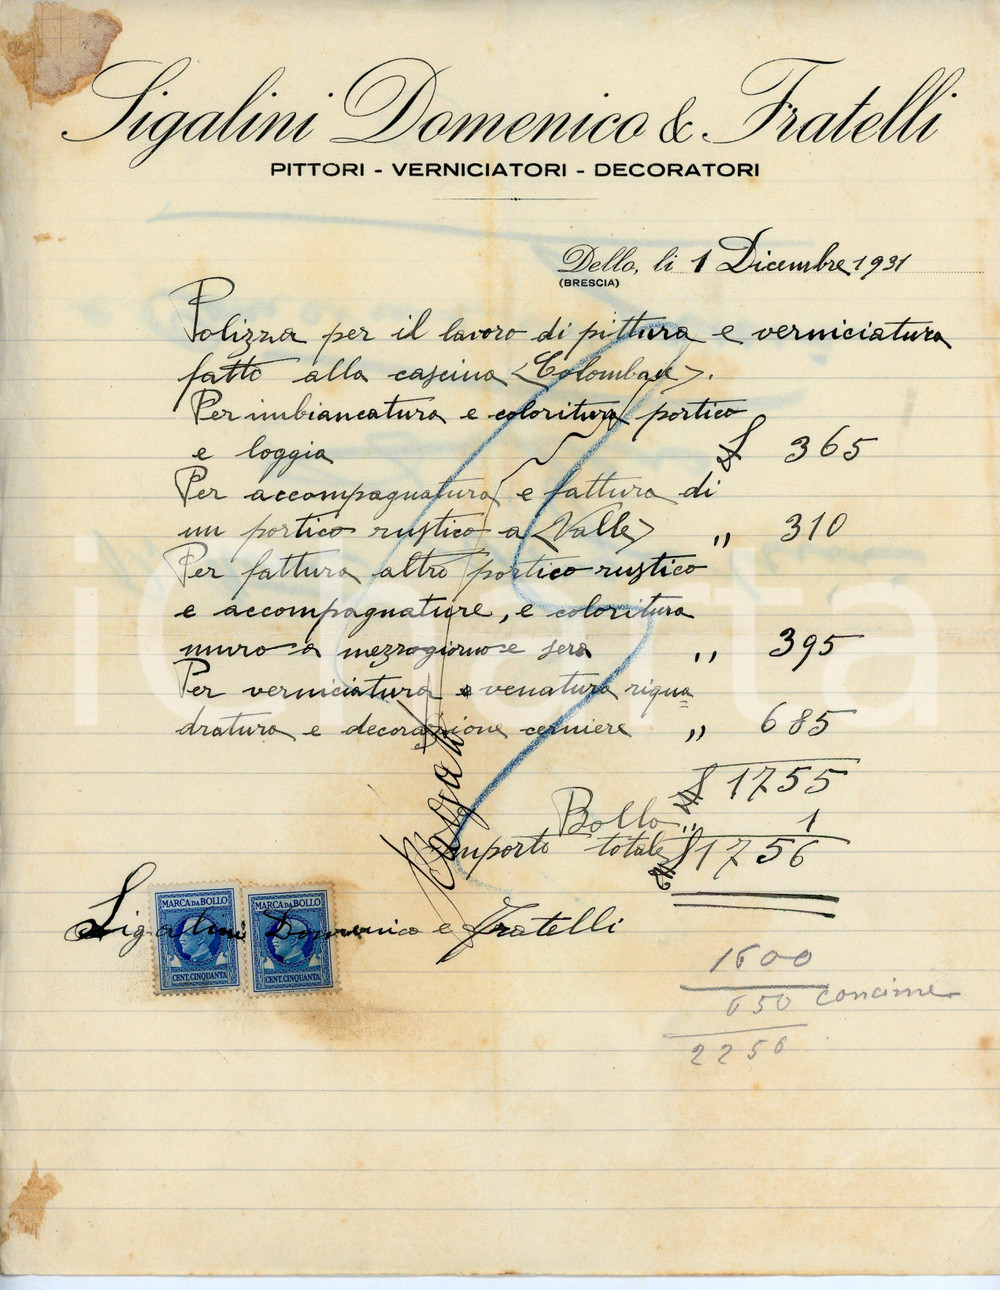 Sigalini Domenico & Fratelli
PITTORI - VERNICIATORI - DECORATORI
Dello, li 1 Dicembre 1931
(BRESCIA)
Polizza per il lavoro di pittura e verniciatura
fatto alla cascina <Colomban>.
Per imbiancatura e coloritura portico
e loggia £ 365
Per accompagnatura e fattura di
un portico rustico a <Valle> " 310
Per fattura altro portico rustico
e accompagnature, e coloritura
muro a mezzogiorno e sera " 395
Per verniciatura e venatura riqua=
dratura e decorazione cerniere " 685
£ 1755
Bollo " 1
Importo totale £ 1756
Pagato
MARCA DA BOLLO MARCA DA BOLLO
Sigalini Domenico e Fratelli
CENT. CINQUANTA CENT. CINQUANTA
1600
650 concime
2256
iCharta